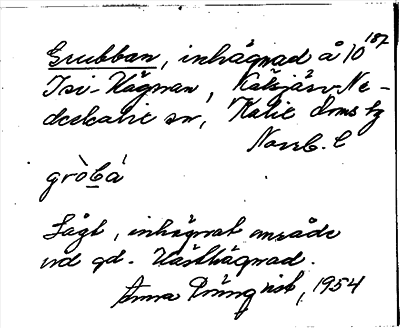 Grubban, inhägnad å 10¹⁸⁷
Isi-Hägnan, Kälsjärv Ne-
derkalix sn, Kalix doms hg
Norrb. l
gròbá
Lågt, inhägnat område
vid gd. Hästhägnad.
Anna Rönnqvist, 1954